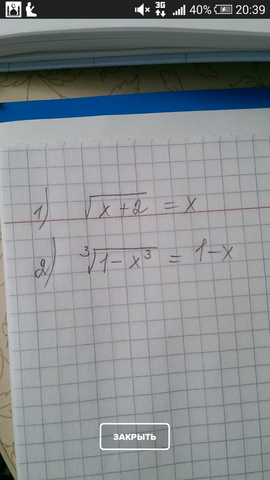 3G 40% 20:39
1) √x+2 = x
2) ³√1-x³ = 1-x
ЗАКРЫТЬ